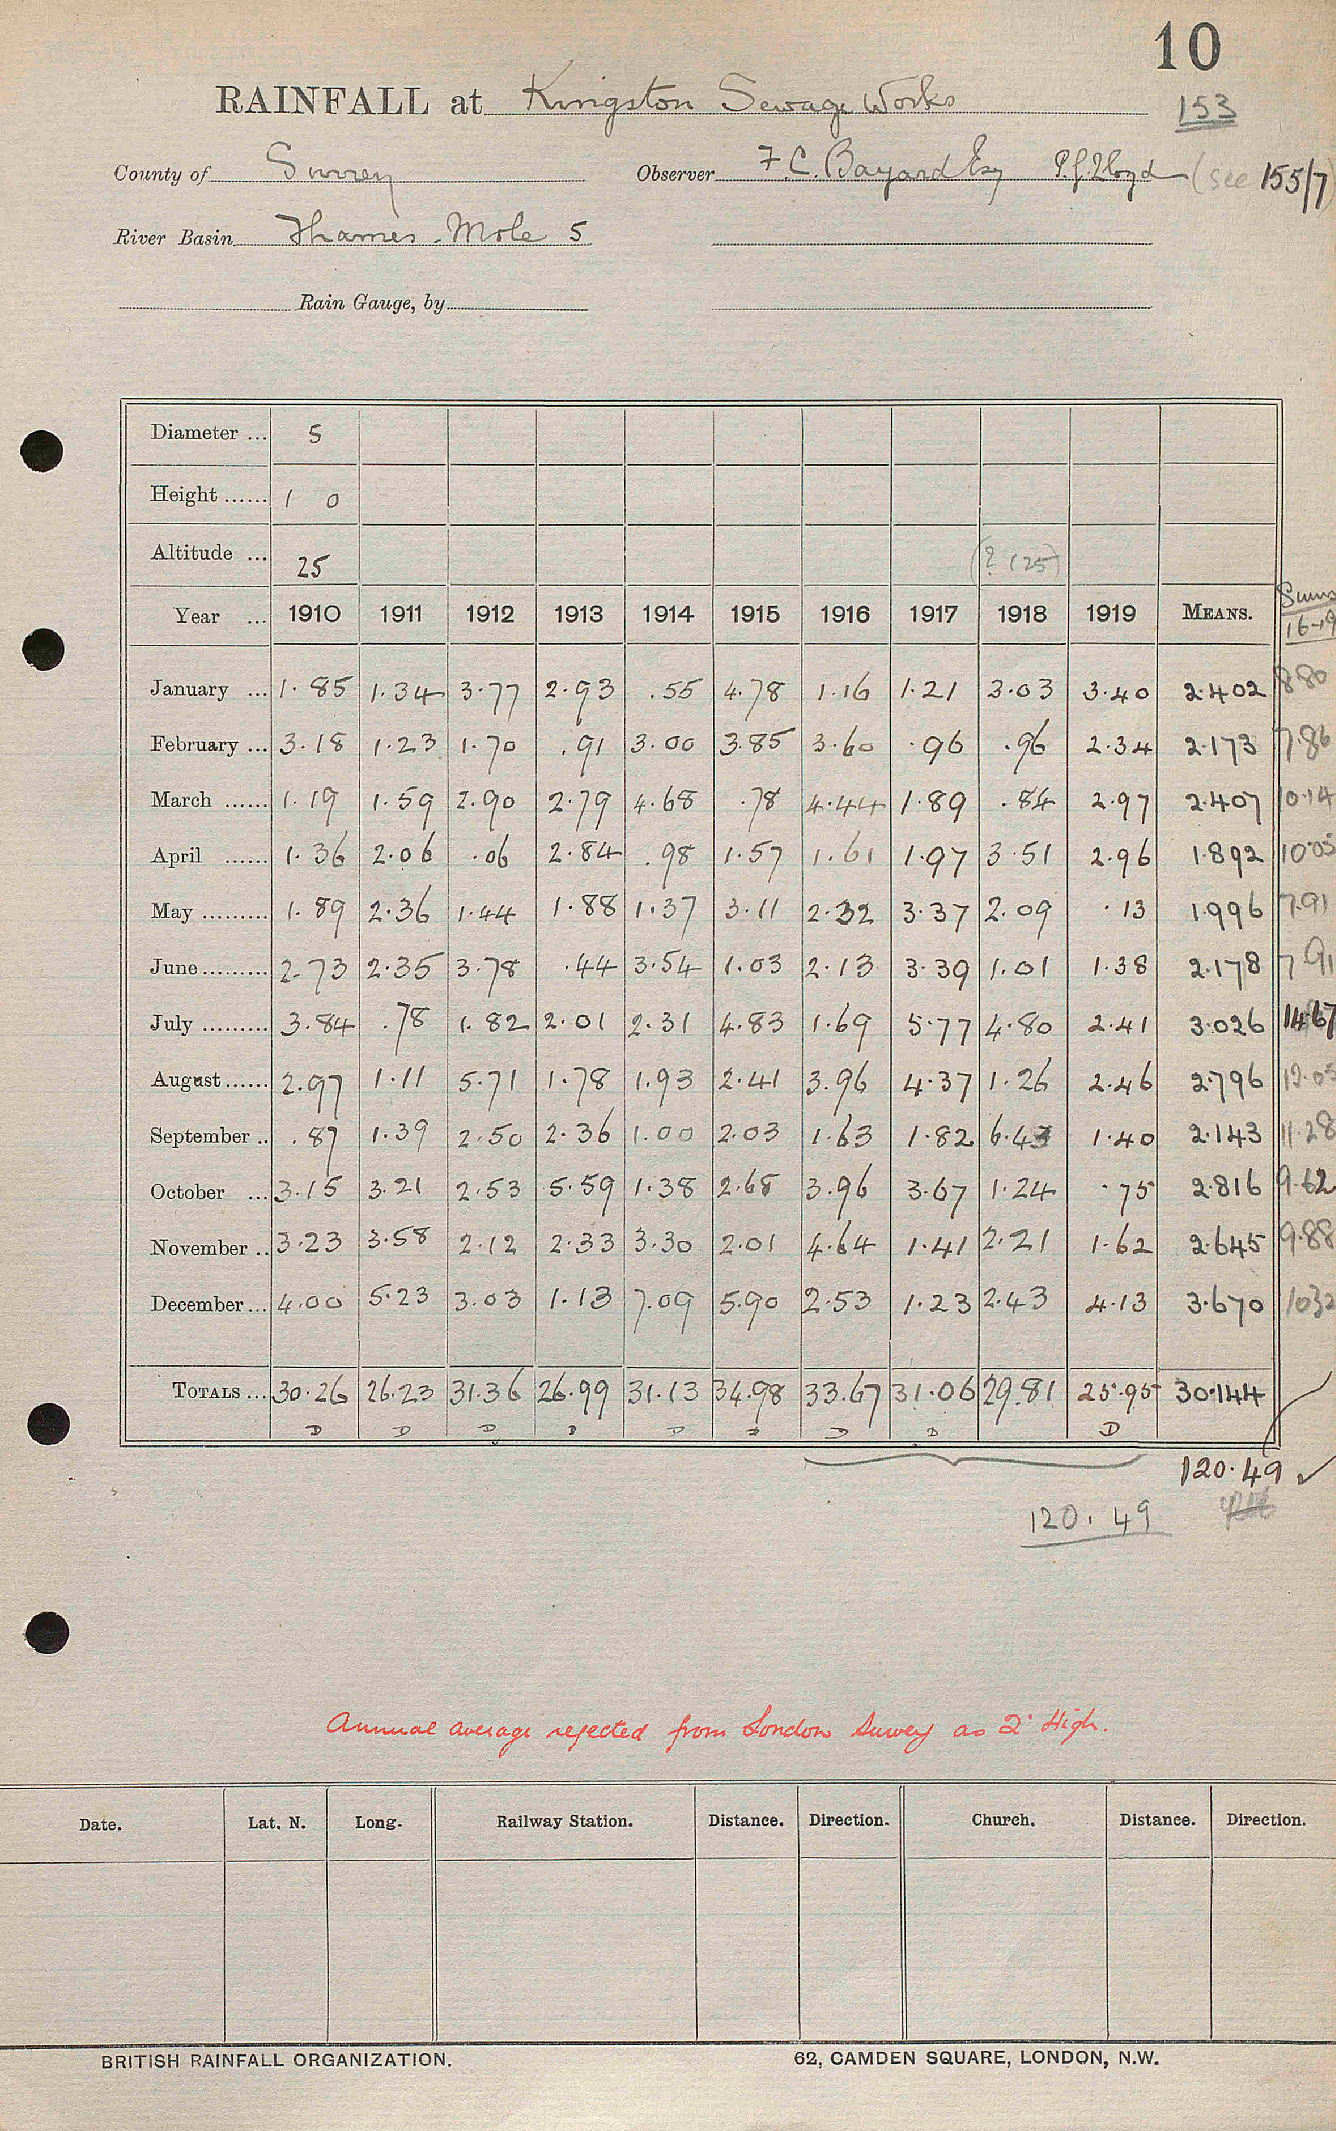 10
RAINFALL at Kingston Sewage Works
153
County of Surrey Observer F. C. Bayard Esq P. J. Lloyd (see 155/7)
River Basin Thames - Mole 5
Rain Gauge, by
Diameter ... 5
Height ...... 1 0
Altitude ... 25 (? 125)
Year ... 1910 1911 1912 1913 1914 1915 1916 1917 1918 1919 MEANS. Sums 16-19
January ... 1.85 1.34 3.77 2.93 .55 4.78 1.16 1.21 3.03 3.40 2.402 8.80
February ... 3.18 1.23 1.70 .91 3.00 3.85 3.60 .96 .96 2.34 2.173 7.86
March ...... 1.19 1.59 2.90 2.79 4.68 .78 4.44 1.89 .84 2.97 2.407 10.14
April ...... 1.36 2.06 .06 2.84 .98 1.57 1.61 1.97 3.51 2.96 1.892 10.05
May ......... 1.89 2.36 1.44 1.88 1.37 3.11 2.32 3.37 2.09 .13 1.996 7.91
June......... 2.73 2.35 3.78 .44 3.54 1.03 2.13 3.39 1.01 1.38 2.178 7.91
July ......... 3.84 .78 1.82 2.01 2.31 4.83 1.69 5.77 4.80 2.41 3.026 14.67
August...... 2.97 1.11 5.71 1.78 1.93 2.41 3.96 4.37 1.26 2.46 2.796 12.05
September .. .87 1.39 2.50 2.36 1.00 2.03 1.63 1.82 6.43 1.40 2.143 11.28
October ... 3.15 3.21 2.53 5.59 1.38 2.68 3.96 3.67 1.24 .75 2.816 9.62
November .. 3.23 3.58 2.12 2.33 3.30 2.01 4.64 1.41 2.21 1.62 2.645 9.88
December ... 4.00 5.23 3.03 1.13 7.09 5.90 2.53 1.23 2.43 4.13 3.670 10.32
TOTALS ... 30.26 26.23 31.36 26.99 31.13 34.98 33.67 31.06 29.81 25.95 30.144
D D D D D D D D D
120.49
120.49
Annual average rejected from London Survey as 2" High.
Date. Lat. N. Long. Railway Station. Distance. Direction. Church. Distance. Direction.
BRITISH RAINFALL ORGANIZATION. 62, CAMDEN SQUARE, LONDON, N.W.